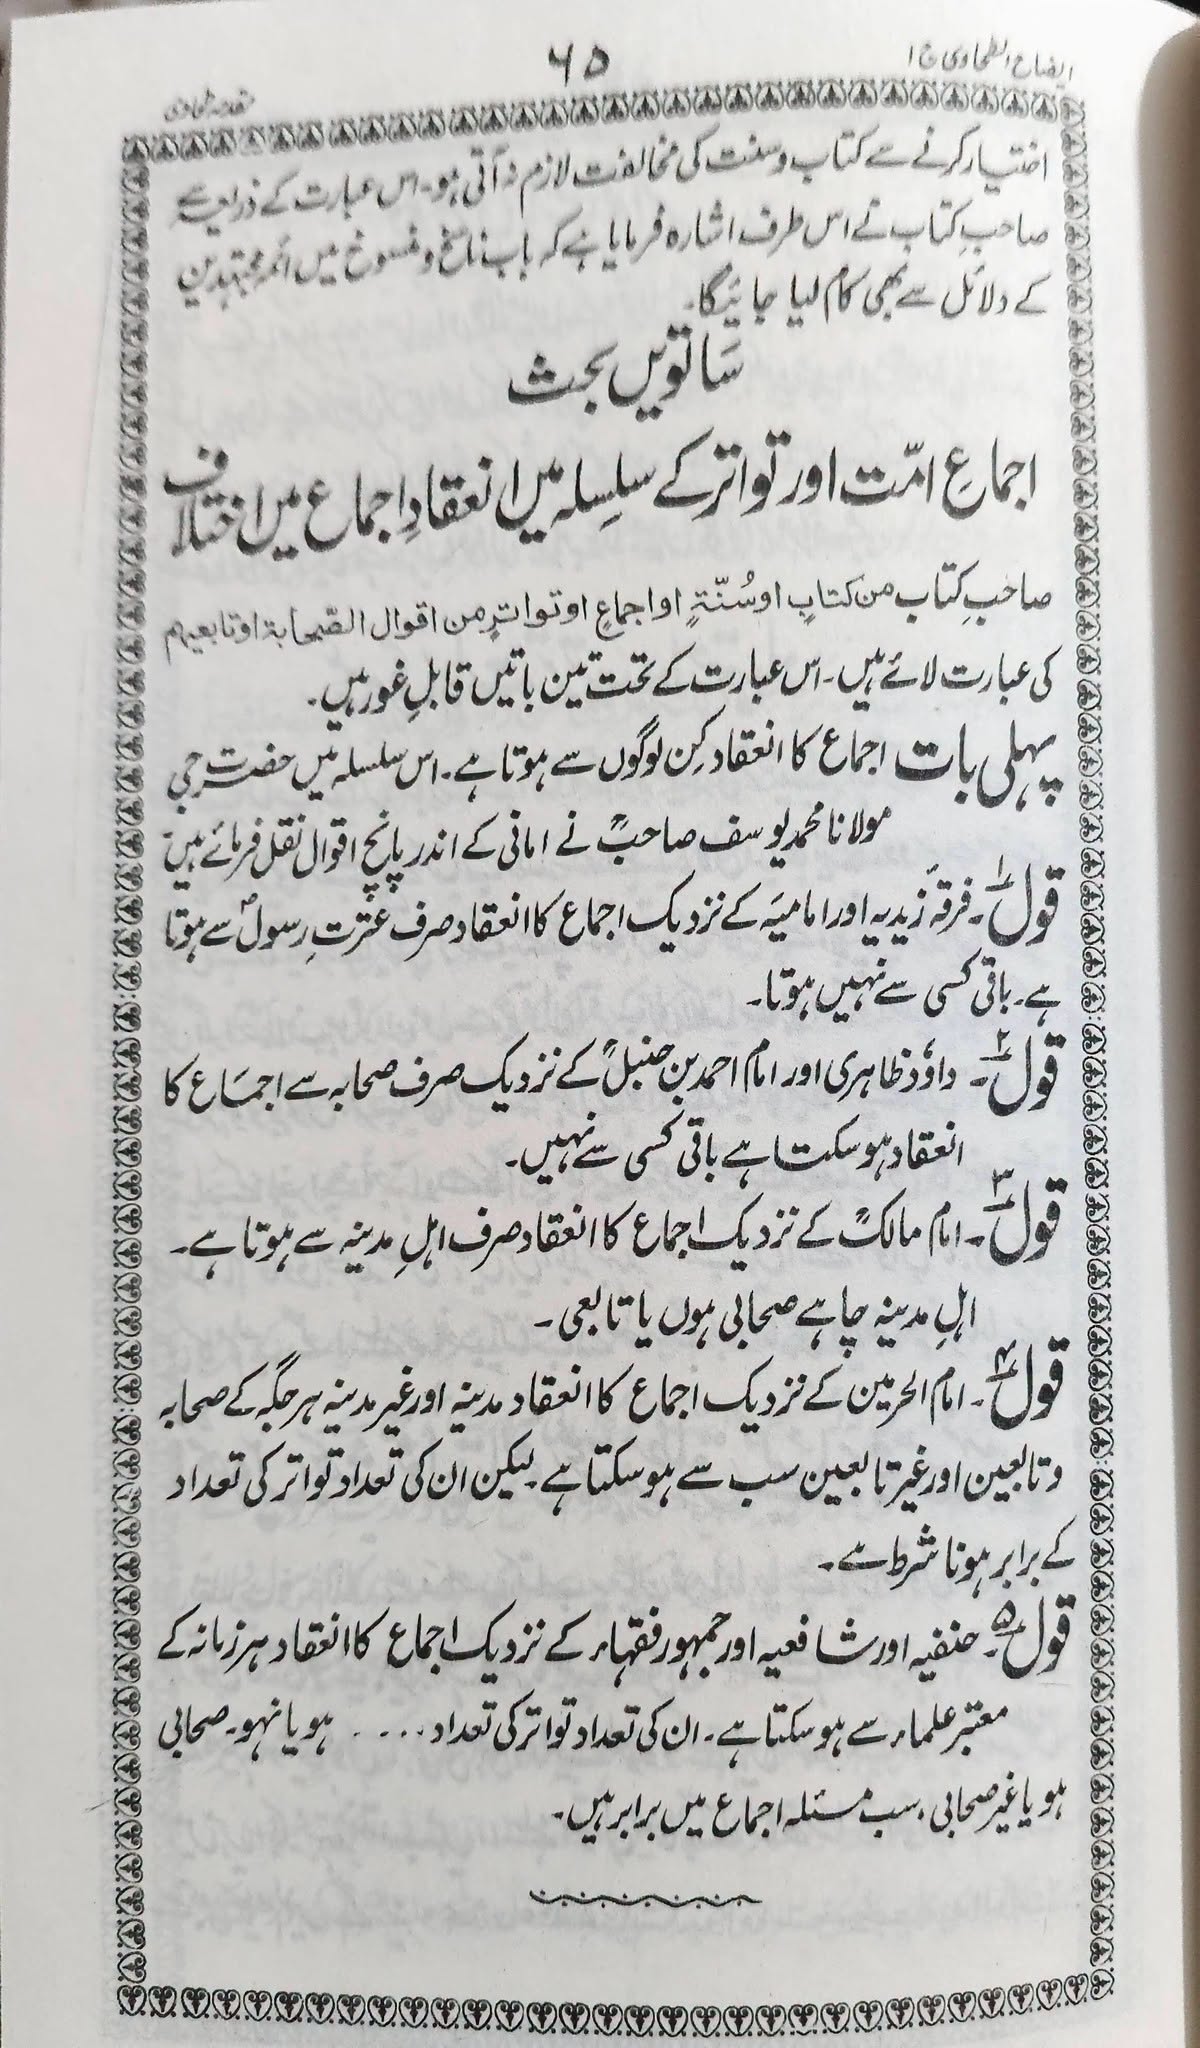 ایضاح الطحاوی ج ۱
۶۵
مقدمہ طحاوی
اختیار کرنے سے کتاب و سنت کی مخالفت لازم نہ آتی ہو۔ اس عبارت کے ذریعہ سے
صاحبِ کتاب نے اس طرف اشارہ فرمایا ہے کہ باب ناسخ و منسوخ میں ائمہ مجتہدین
کے دلائل سے بھی کام لیا جائیگا۔
سَاتویں بحث
اجماعِ امّت اور تواتر کے سلسِلہ میں انعقادِ اجماع میں اختلاف
صاحبِ کتاب من کتابٍ او سُنّۃٍ او اجماعٍ او تواترٍ من اقوال الصّحابۃ او تابعیھم
کی عبارت لائے ہیں۔ اس عبارت کے تحت تین باتیں قابلِ غور ہیں۔
پہلی بات اجماع کا انعقاد کِن لوگوں سے ہوتا ہے۔ اس سلسلہ میں حضرت جی
مولانا محمد یوسف صاحبؒ نے امانی کے اندر پانچ اقوال نقل فرمائے ہیں
قول ۱۔ فرقہ زیدیہ اور امامیَہ کے نزدیک اجماع کا انعقاد صرف عترتِ رسولؐ سے ہوتا
ہے۔ باقی کسی سے نہیں ہوتا۔
قول ۲۔ داؤد ظاہری اور امام احمد بن حنبلؒ کے نزدیک صرف صحابہ سے اجمَاع کا
انعقاد ہوسکتا ہے باقی کسی سے نہیں۔
قول ۳۔ امام مالکؒ کے نزدیک اجماع کا انعقاد صرف اہلِ مدینہ سے ہوتا ہے۔
اہلِ مدینہ چاہے صحابی ہوں یا تابعی۔
قول ۴۔ امام الحرمین کے نزدیک اجماع کا انعقاد مدینہ اور غیر مدینہ ہر جگہ کے صحابہ
و تابعین اور غیر تابعین سب سے ہوسکتا ہے۔ لیکن ان کی تعداد تواتر کی تعداد
کے برابر ہونا شرط ہے۔
قول ۵۔ حنفیہ اور شافعیہ اور جمہور فقہاء کے نزدیک اجماع کا انعقاد ہر زمانہ کے
معتبر علماء سے ہوسکتا ہے۔ ان کی تعداد تواتر کی تعداد.... ہو یا نہو۔ صحابی
ہو یا غیر صحابی، سب مسئلہ اجماع میں برابر ہیں۔